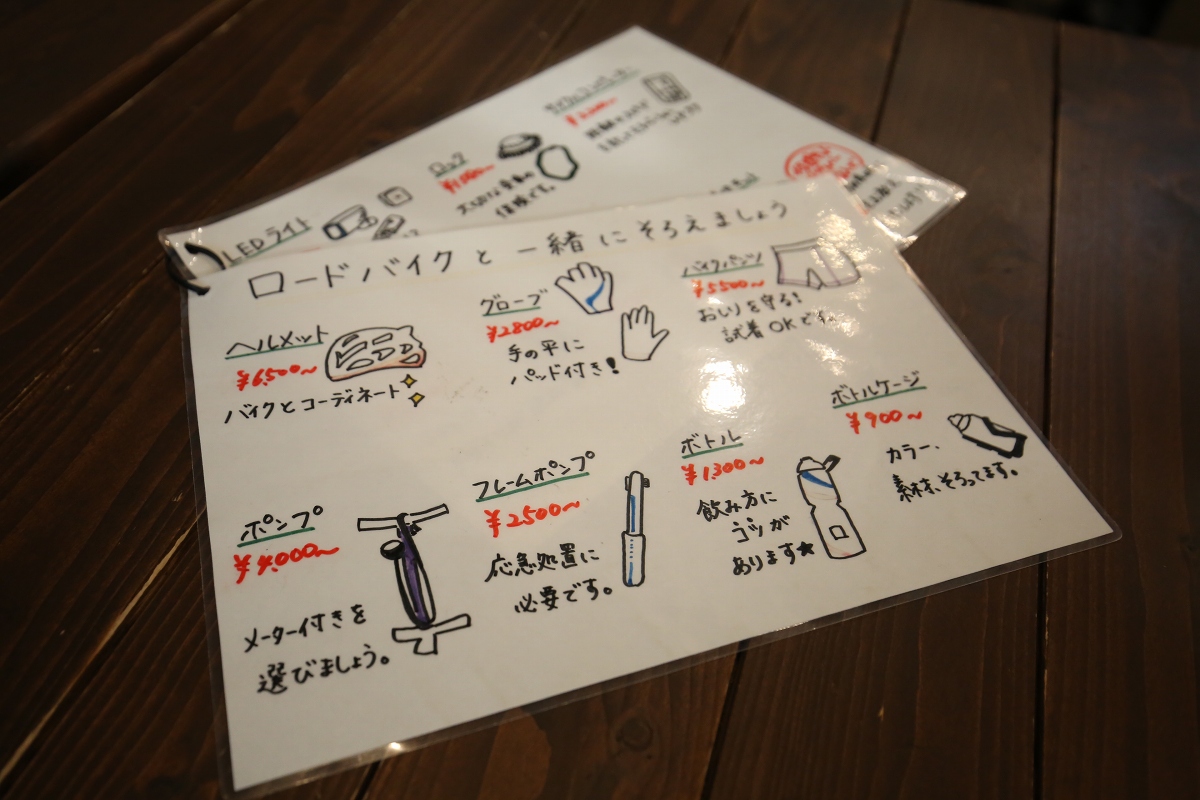 ロードバイクと一緒にそろえましょう
ヘルメット
¥6,500〜
バイクとコーディネート
グローブ
¥2800〜
手の平に
パッド付き!
バイクパンツ
¥5500〜
おしりを守る!
試着OKです
ポンプ
¥4,000〜
メーター付きを
選びましょう。
フレームポンプ
¥2500〜
応急処置に
必要です。
ボトル
¥1,300〜
飲み方に
コツが
あります★
ボトルケージ
¥900〜
カラー、
素材、そろってます。
LEDライト
ロック
大切な愛車の
保険です。